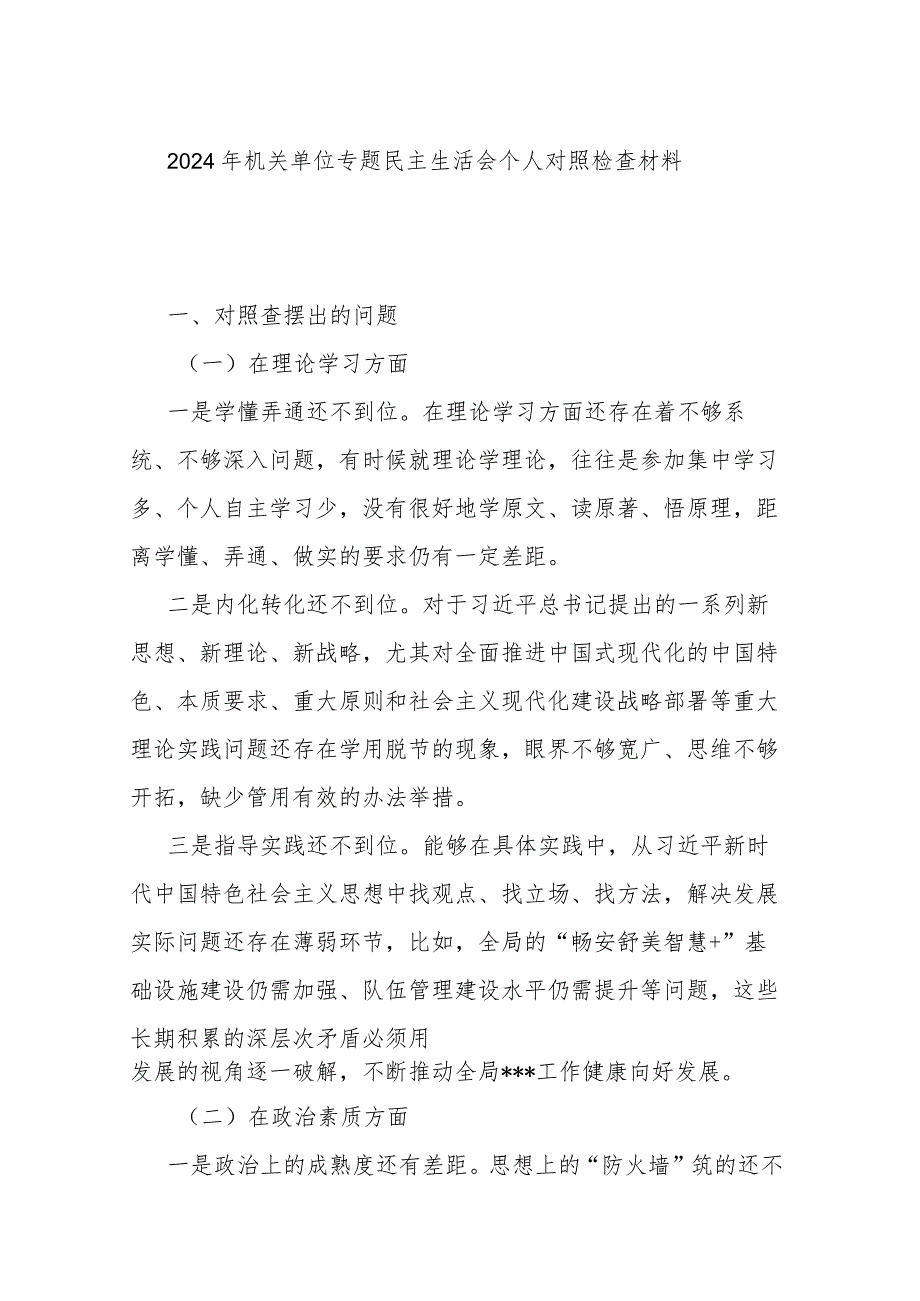 2024年机关单位专题民主生活会个人对照检查材料
一、对照查摆出的问题
（一）在理论学习方面
一是学懂弄通还不到位。在理论学习方面还存在着不够系
统、不够深入问题，有时候就理论学理论，往往是参加集中学习
多、个人自主学习少，没有很好地学原文、读原著、悟原理，距
离学懂、弄通、做实的要求仍有一定差距。
二是内化转化还不到位。对于习近平总书记提出的一系列新
思想、新理论、新战略，尤其对全面推进中国式现代化的中国特
色、本质要求、重大原则和社会主义现代化建设战略部署等重大
理论实践问题还存在学用脱节的现象，眼界不够宽广、思维不够
开拓，缺少管用有效的办法举措。
三是指导实践还不到位。能够在具体实践中，从习近平新时
代中国特色社会主义思想中找观点、找立场、找方法，解决发展
实际问题还存在薄弱环节，比如，全局的“畅安舒美智慧+”基
础设施建设仍需加强、队伍管理建设水平仍需提升等问题，这些
长期积累的深层次矛盾必须用
发展的视角逐一破解，不断推动全局***工作健康向好发展。
（二）在政治素质方面
一是政治上的成熟度还有差距。思想上的“防火墙”筑的还不